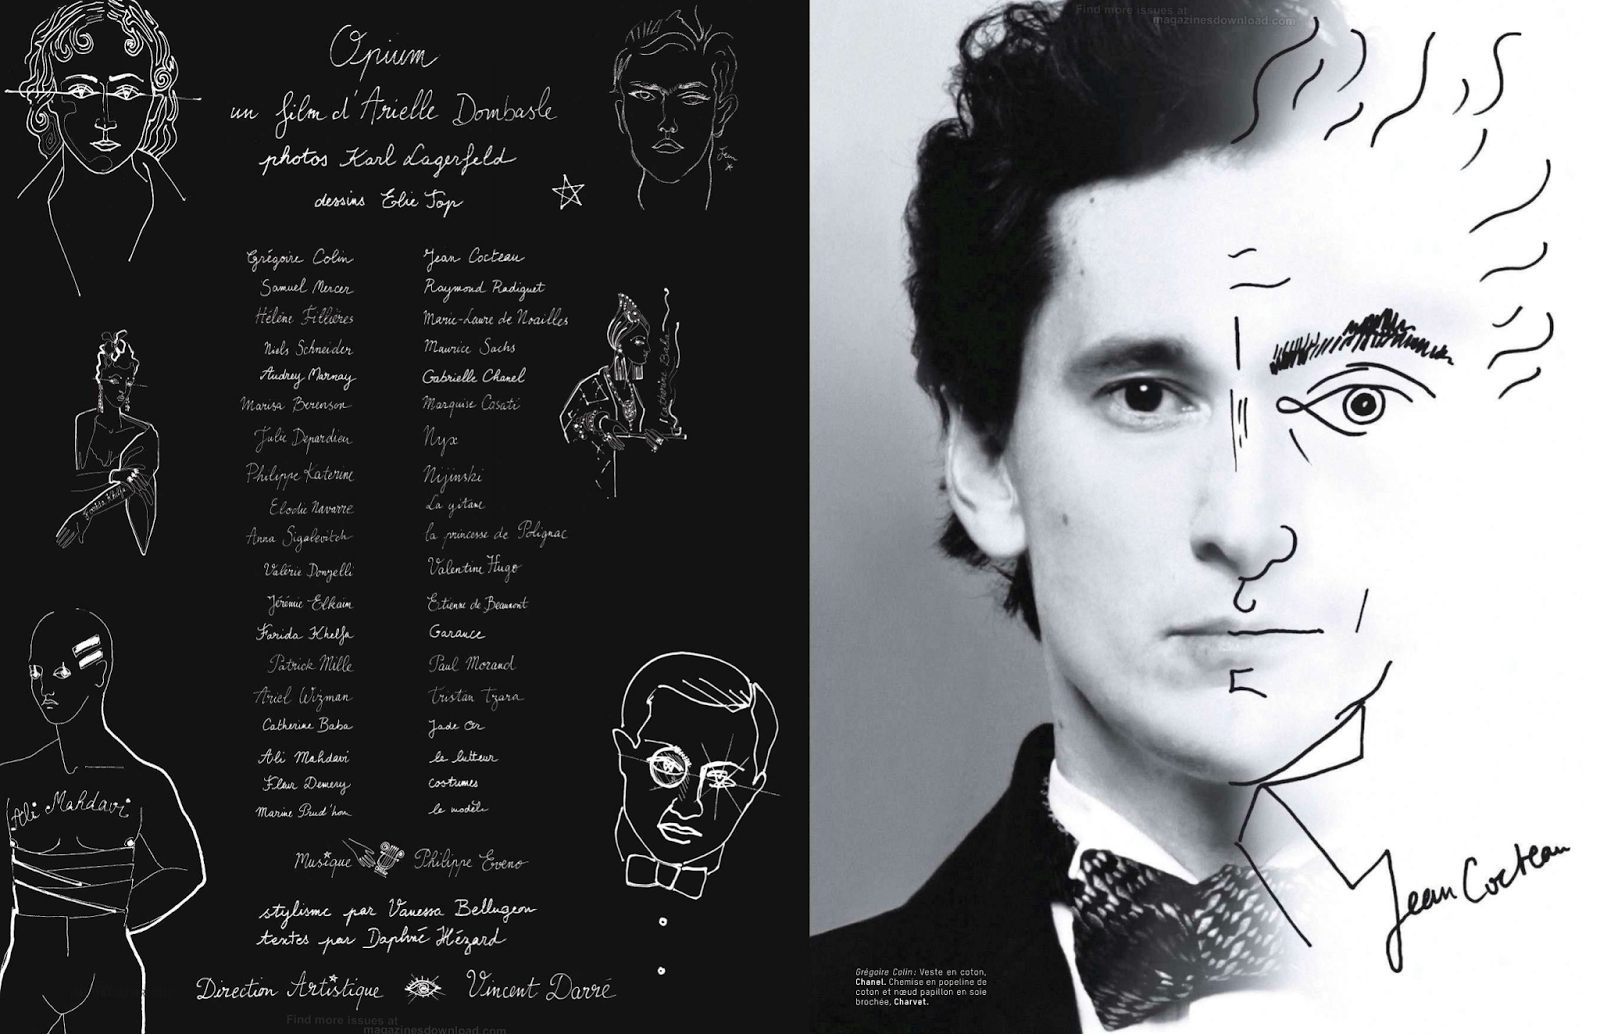 Opium
un film d'Arielle Dombasle
photos Karl Lagerfeld
dessins Elie Top
Jean
Grégoire Colin Jean Cocteau
Samuel Mercer Raymond Radiguet
Hélène Fillières Marie-Laure de Noailles
Niels Schneider Maurice Sachs
Audrey Marnay Gabrielle Chanel
Marisa Berenson Marquise Casati
Julie Depardieu Nyx
Philippe Katerine Nijinski
Elodie Navarre La gitane
Anna Sigalevitch la princesse de Polignac
Valérie Donzelli Valentine Hugo
Jérémie Elkaïm Etienne de Beaumont
Farida Khelfa Garance
Patrick Mille Paul Morand
Ariel Wizman Tristan Tzara
Catherine Baba Jade Or
Ali Mahdavi le lutteur
Fleur Demery costumes
Marine Prud'hom le modèle
Musique Philippe Eveno
stylisme par Vanessa Bellugeon
textes par Daphné Hézard
Direction Artistique Vincent Darré
Catherine Baba
Farida Khelfa
Ali Mahdavi
Find more issues at
magazinesdownload.com
Find more issues at
magazinesdownload.com
Jean Cocteau
Grégoire Colin : Veste en coton,
Chanel. Chemise en popeline de
coton et nœud papillon en soie
brochée, Charvet.